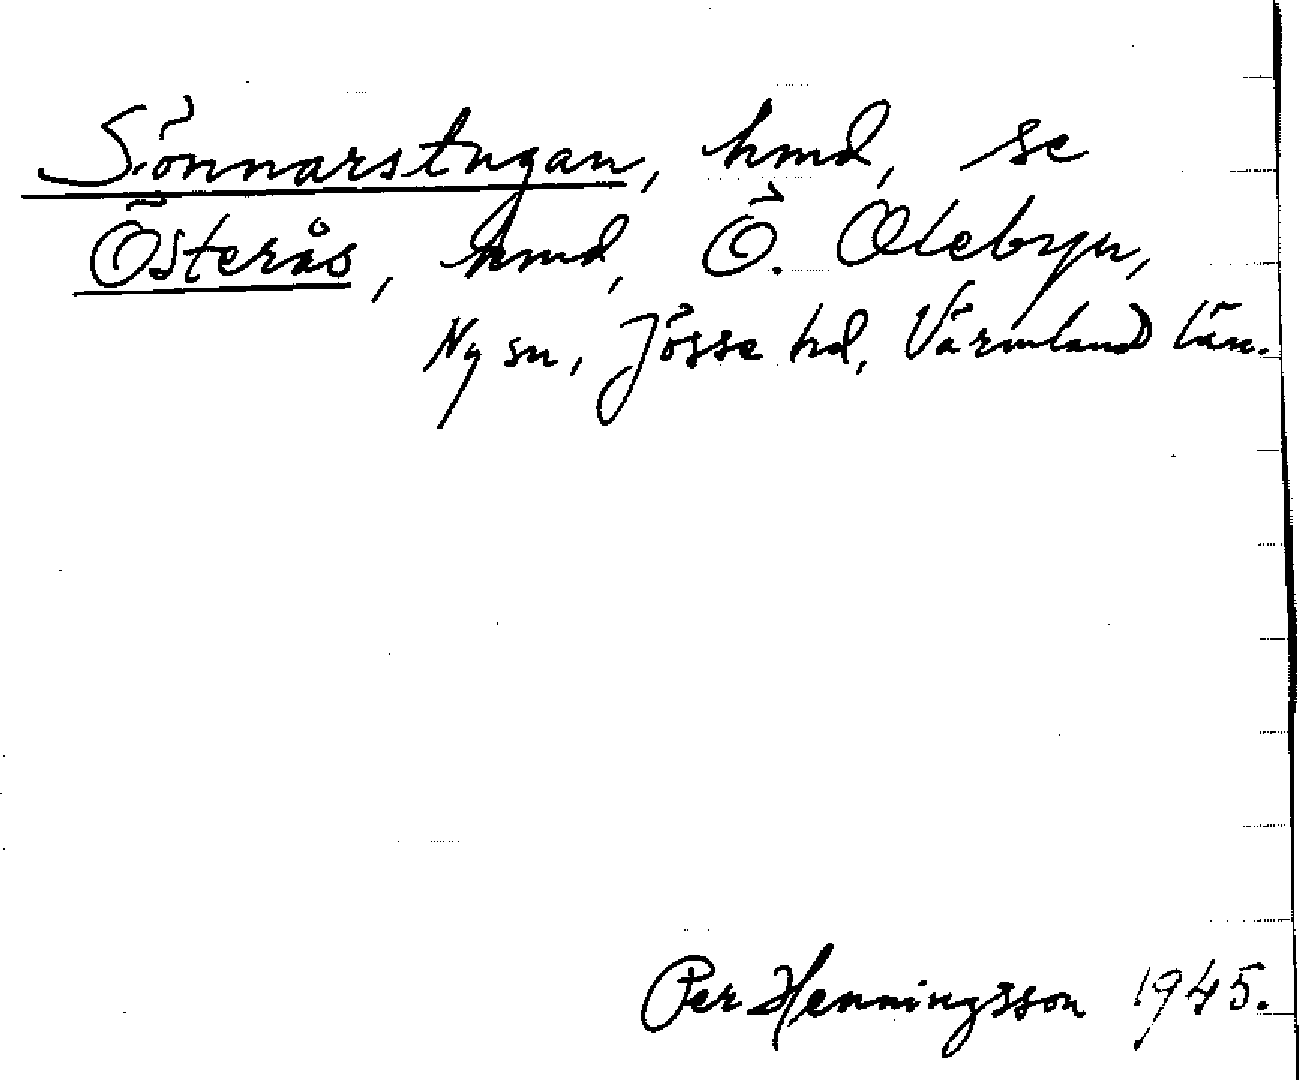 Sönnarstugan, hmd, se
Österås, hmd, Ö. Olebyn,
Ny sn, Jösse hd, Värmland län.
Per Henningsson 1945.